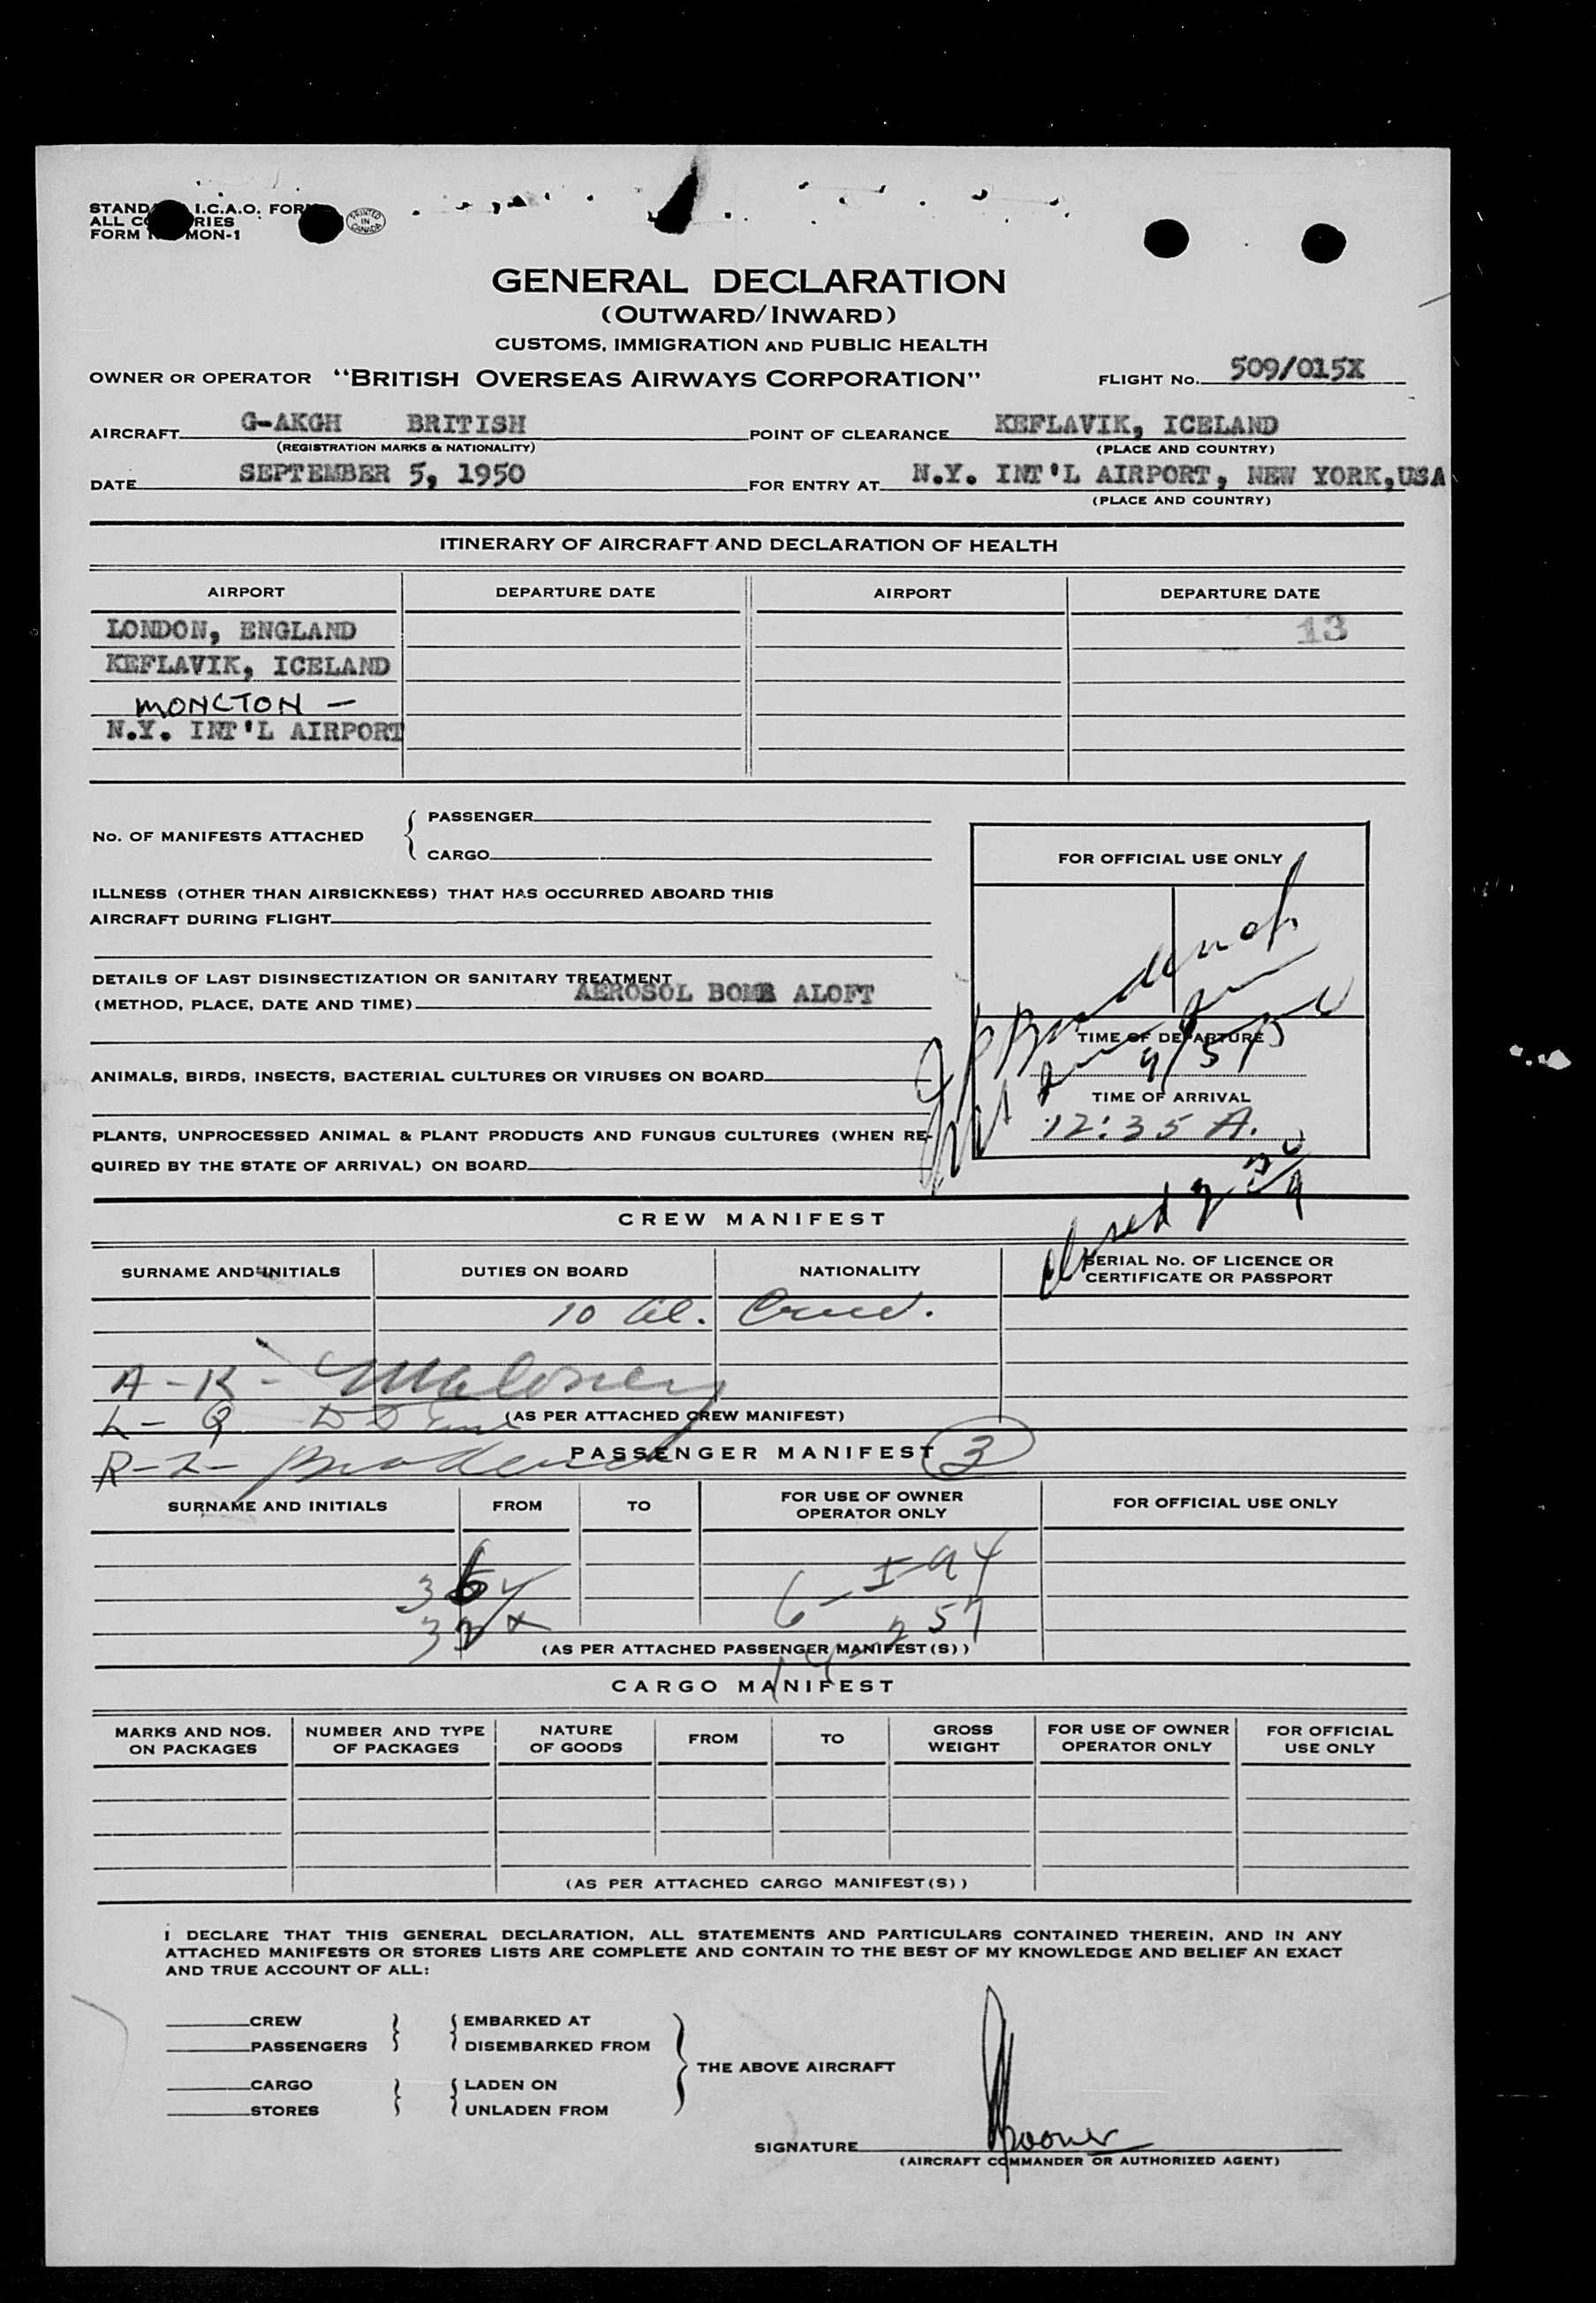 STAND I.C.A.O. FOR
ALL CO RIES
FORM MON-1
PRINTED IN CANADA
GENERAL DECLARATION
(OUTWARD/INWARD)
CUSTOMS, IMMIGRATION AND PUBLIC HEALTH
OWNER OR OPERATOR "BRITISH OVERSEAS AIRWAYS CORPORATION" FLIGHT No. 509/015X
AIRCRAFT G-AKGH BRITISH POINT OF CLEARANCE KEFLAVIK, ICELAND
(REGISTRATION MARKS & NATIONALITY) (PLACE AND COUNTRY)
DATE SEPTEMBER 5, 1950 FOR ENTRY AT N.Y. INT'L AIRPORT, NEW YORK, USA
(PLACE AND COUNTRY)
ITINERARY OF AIRCRAFT AND DECLARATION OF HEALTH
AIRPORT DEPARTURE DATE AIRPORT DEPARTURE DATE
LONDON, ENGLAND 13
KEFLAVIK, ICELAND
MONCTON —
N.Y. INT'L AIRPORT
No. OF MANIFESTS ATTACHED { PASSENGER
CARGO
FOR OFFICIAL USE ONLY
ILLNESS (OTHER THAN AIRSICKNESS) THAT HAS OCCURRED ABOARD THIS
AIRCRAFT DURING FLIGHT
DETAILS OF LAST DISINSECTIZATION OR SANITARY TREATMENT
(METHOD, PLACE, DATE AND TIME) AEROSOL BOMB ALOFT
TIME OF DEPARTURE
9/5/50
ANIMALS, BIRDS, INSECTS, BACTERIAL CULTURES OR VIRUSES ON BOARD
TIME OF ARRIVAL
12:35 A.
PLANTS, UNPROCESSED ANIMAL & PLANT PRODUCTS AND FUNGUS CULTURES (WHEN RE-
QUIRED BY THE STATE OF ARRIVAL) ON BOARD
CREW MANIFEST
SURNAME AND INITIALS DUTIES ON BOARD NATIONALITY SERIAL No. OF LICENCE OR
CERTIFICATE OR PASSPORT
10 al. Crew.
A-K- Maloney
L-Q
(AS PER ATTACHED CREW MANIFEST)
R-Z-
PASSENGER MANIFEST 3
SURNAME AND INITIALS FROM TO FOR USE OF OWNER
OPERATOR ONLY FOR OFFICIAL USE ONLY
6-I-94
257
(AS PER ATTACHED PASSENGER MANIFEST(S))
CARGO MANIFEST
MARKS AND NOS.
ON PACKAGES NUMBER AND TYPE
OF PACKAGES NATURE
OF GOODS FROM TO GROSS
WEIGHT FOR USE OF OWNER
OPERATOR ONLY FOR OFFICIAL
USE ONLY
(AS PER ATTACHED CARGO MANIFEST(S))
I DECLARE THAT THIS GENERAL DECLARATION, ALL STATEMENTS AND PARTICULARS CONTAINED THEREIN, AND IN ANY
ATTACHED MANIFESTS OR STORES LISTS ARE COMPLETE AND CONTAIN TO THE BEST OF MY KNOWLEDGE AND BELIEF AN EXACT
AND TRUE ACCOUNT OF ALL:
CREW } { EMBARKED AT
PASSENGERS } { DISEMBARKED FROM
THE ABOVE AIRCRAFT
CARGO } { LADEN ON
STORES } { UNLADEN FROM
SIGNATURE
(AIRCRAFT COMMANDER OR AUTHORIZED AGENT)